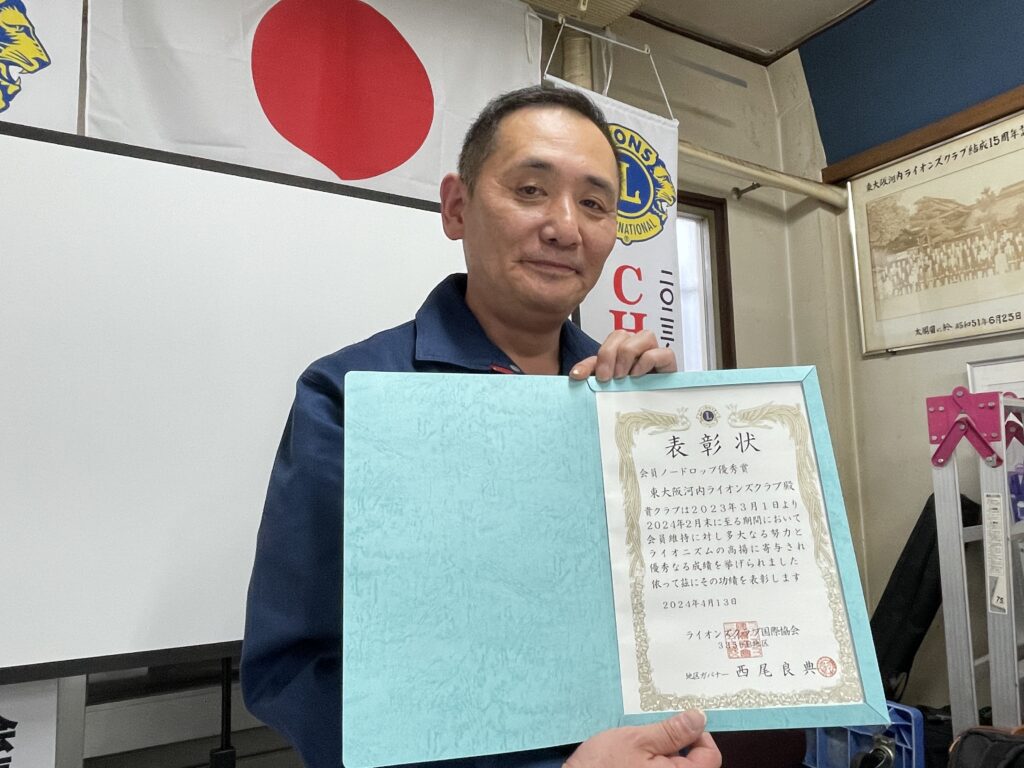 LIONS
L
INTERNATIONAL
C
H
二〇二三
東大阪河内ライオンズクラブ 結成15周年
太閤園に於 昭和51年6月23日
表彰状
会員ノードロップ優秀賞
東大阪河内ライオンズクラブ殿
貴クラブは2023年3月1日より
2024年2月末に至る期間において
会員維持に対し多大なる努力と
ライオニズムの高揚に寄与され
優秀なる成績を挙げられました
依って茲にその功績を表彰します
2024年4月13日
ライオンズクラブ国際協会
335-B地区
地区ガバナー 西尾良典